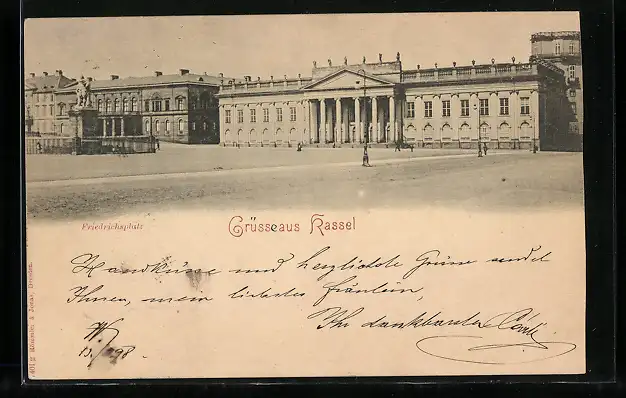 Friedrichsplatz
Grüsse aus Kassel
Handküsse und herzlichste Grüsse sendet
Ihnen, mein liebstes Fräulein,
Ihr dankbarster Carl
W
13./ 98
Römmler & Jonas, Dresden.